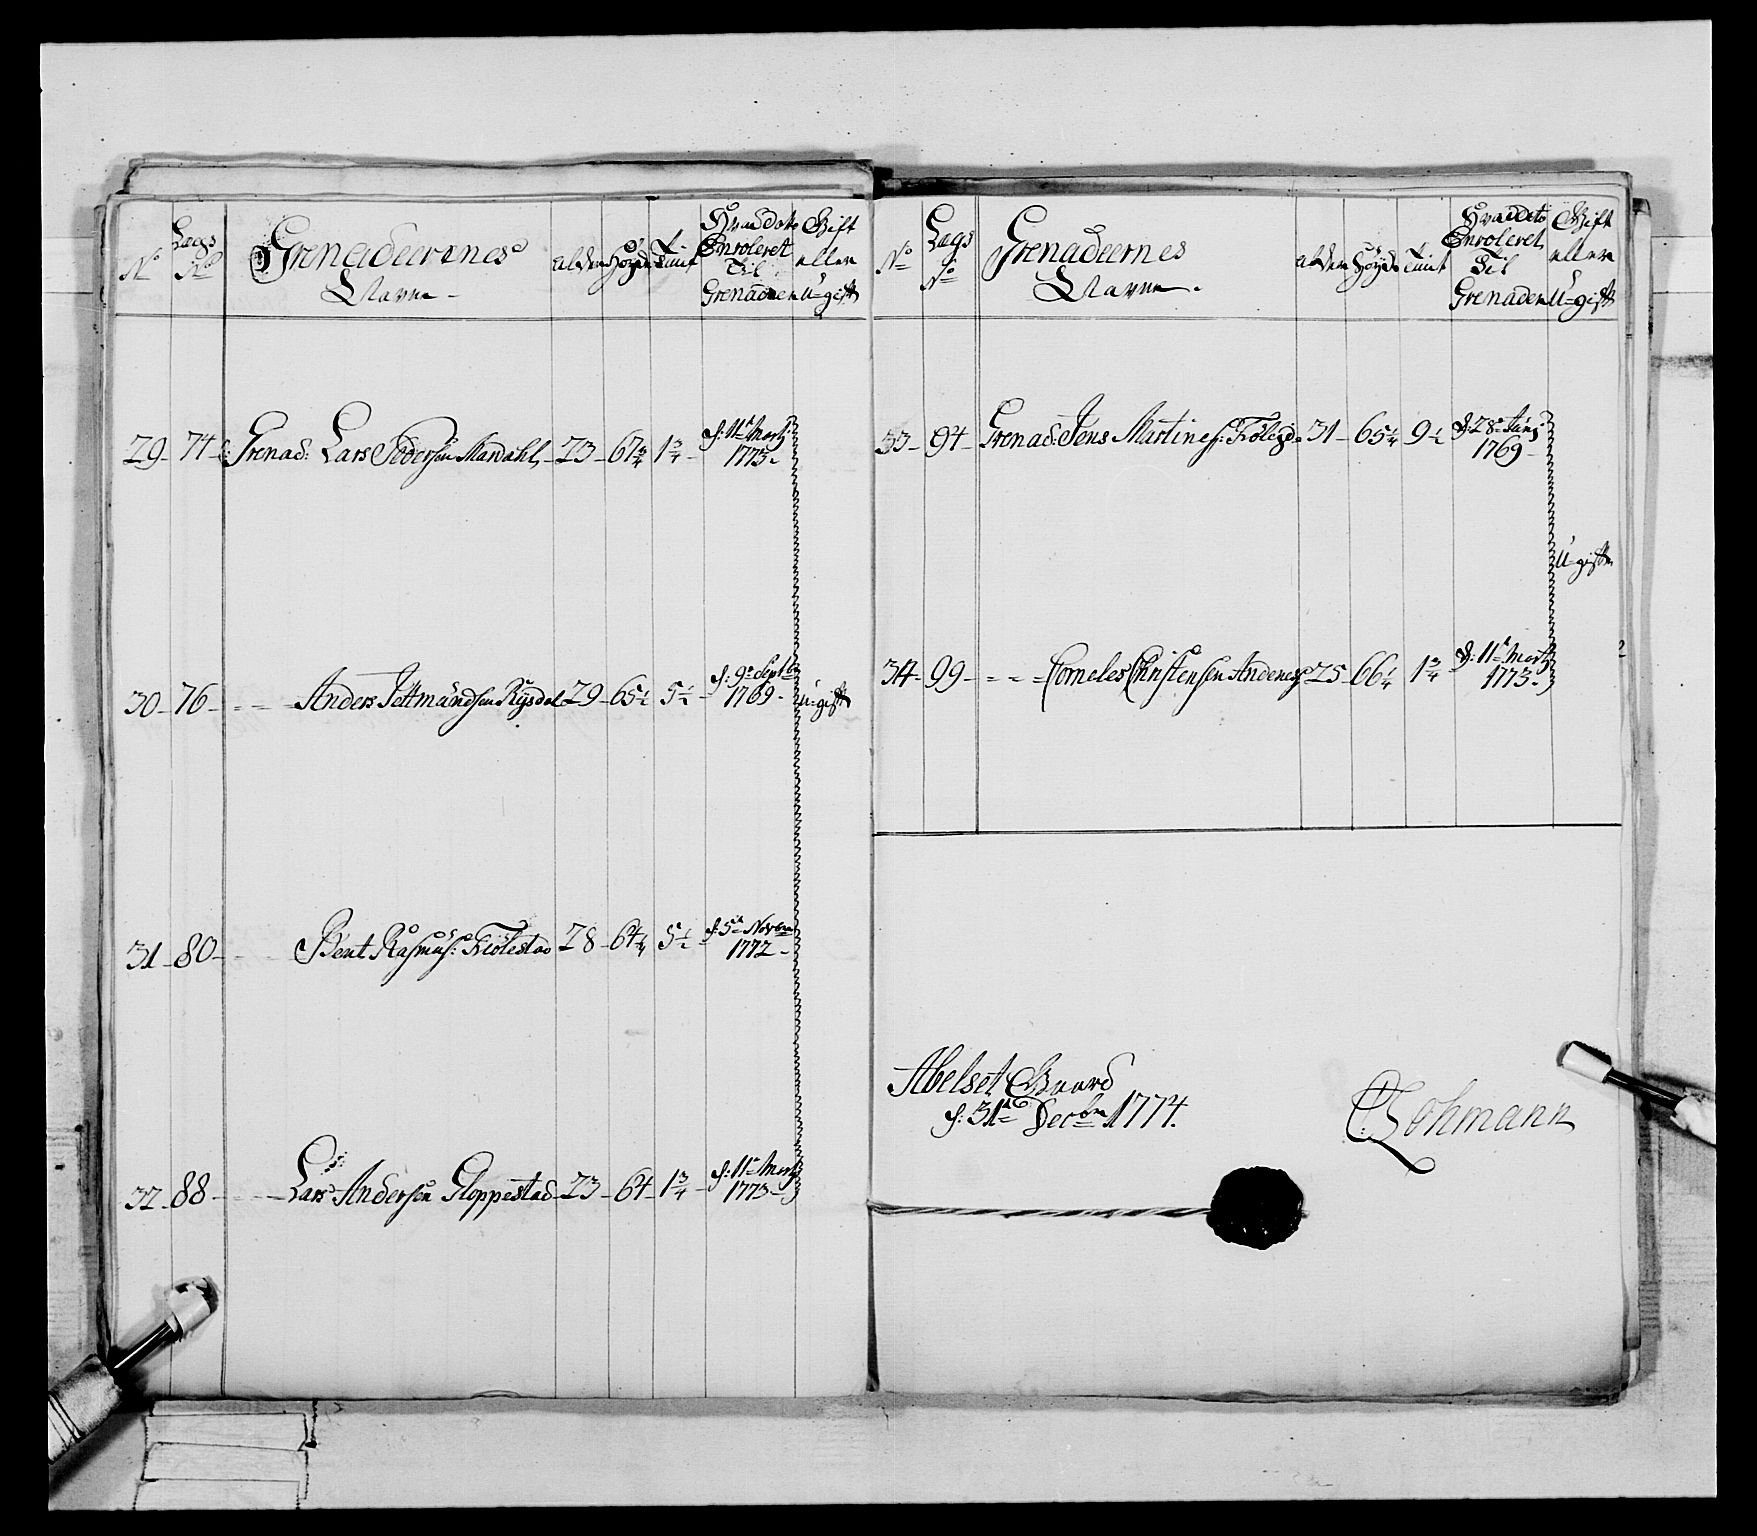 No
Lægs No
Grenadeerernes Navne -
alder
Höyde
Hvad dato Enroleret Til Grenader
Gift eller U-gift
29 - 74 - Grenad: Lars Pedersen Mardahl - 23 - 67 3/4 - 1 3/4 - d: 11te Marty 1773 -
30 - 76 - - - Anders Rysdal - 29 - 65 1/2 - 5 1/2 - d: 9de Septbr 1769 -
U-gift
31 - 80 - - - Bent Rasmus: - 28 - 64 1/4 5 1/2 - d: 5te Novbr 1772 -
32 - 88 - - - Lars Andersen Gloppestad - 23 - 64 - 1 3/4 - d: 11te Marty 1773 -
No
Lægs No
Grenadeernes Navne -
alder
Höyde
Hvad dato Enroleret Til Grenader
Gift eller U-gift
33 - 94 - Grenad: Jens Martines: - 31 - 65 1/4 9 1/2 d: 28de 1769 -
U-gifte
34 - 99 - - - - Corneles Christensen - 25 - 66 1/4 1 3/4 - d: 11te Marty 1773 -
Abelset Gaard
d: 31te Decbr 1774.
Lohmann